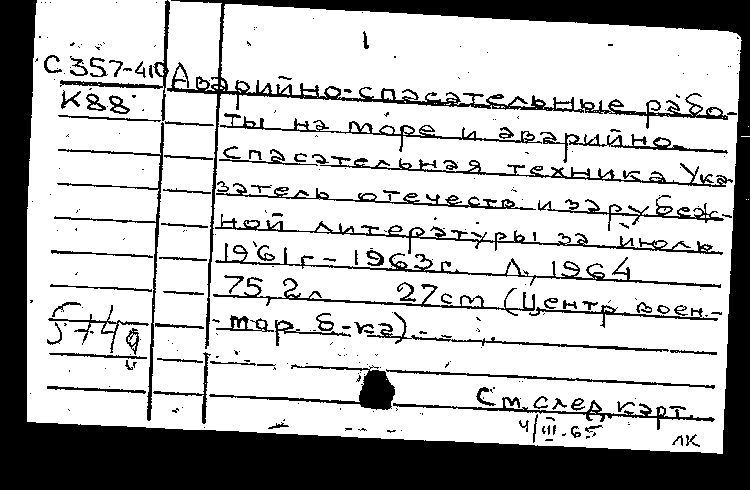 1
С357-410 Аварийно-спасательные рабо-
К88 ты на море и аварийно-
спасательная техника Ука-
затель отечеств и зарубеж-
ной литературы за июль
1961г - 1963г. Л., 1964
75, 2л 27cm (Центр. воен.-
мор. б-ка). -
См. след. карт.
4/III.65
ЛК